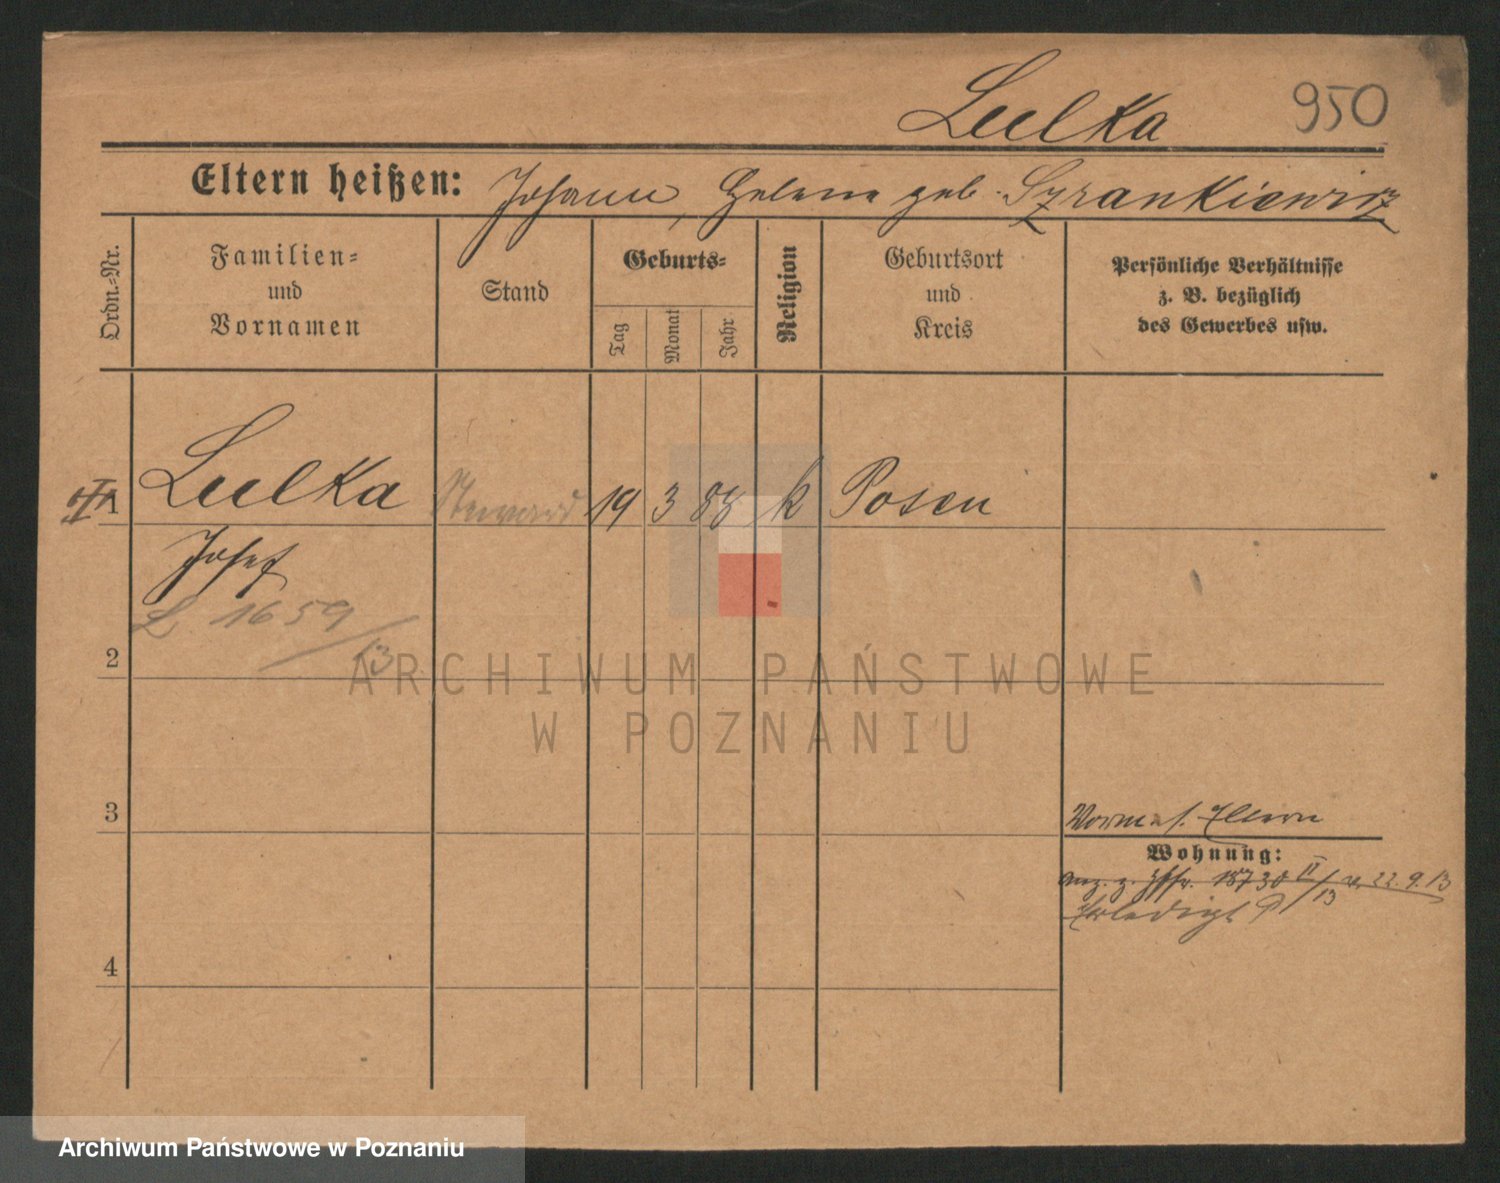 Lulka 950
Eltern heißen: Johann, Helene geb. Szrankiewicz
Ordn.-Nr.
Familien-
und
Vornamen
Stand
Geburts-
Tag
Monat
Jahr
Religion
Geburtsort
und
Kreis
Persönliche Verhältnisse
z. B. bezüglich
des Gewerbes usw.
1 Lulka 19 3 88 k Posen
Josef
L 1659/13
2
ARCHIWUM PAŃSTWOWE
W POZNANIU
3
Eltern
Wohnung:
18730 II/13 v. 22.9.13
Erledigt
4
Archiwum Państwowe w Poznaniu